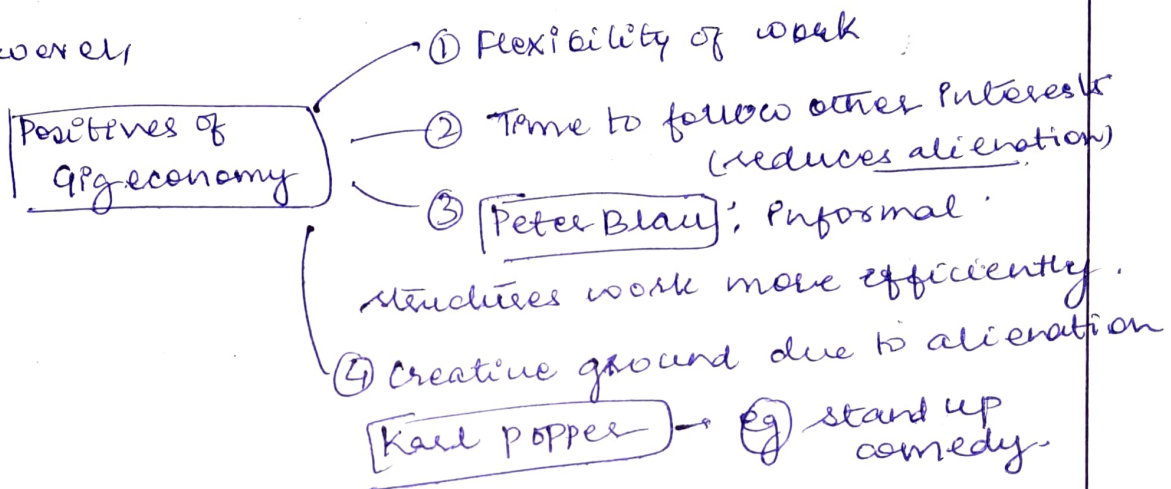 ① Flexibility of work
Positives of
Gig economy
② Time to follow other interests
(reduces alienation)
③ Peter Blau: Informal
structures work more efficiently.
④ Creative ground due to alienation
Karl Popper → eg stand up
comedy.